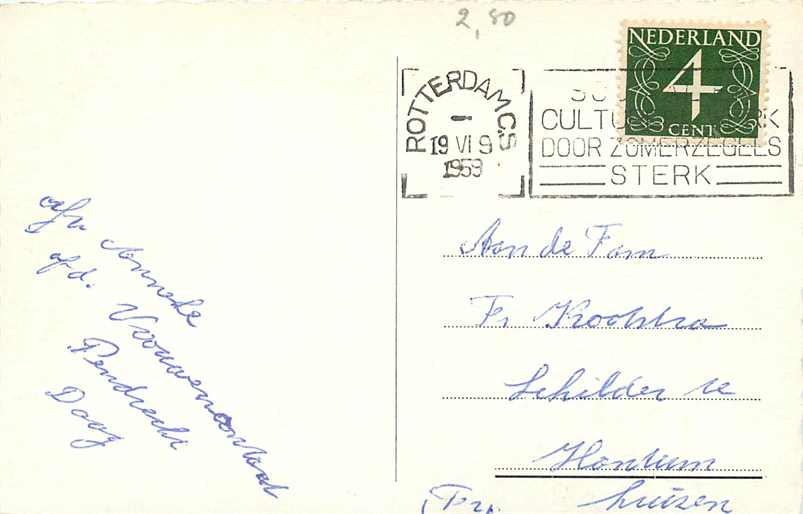 2,80
NEDERLAND
4
CENT
ROTTERDAM C.S
19 VI 9
1959
CULTU RK
DOOR ZOMERZEGELS
STERK
afz Anneke
afd. Vrouwencontact
Pendrecht
Aan de Fam
Fr Kooistra
Schilder te
Hantum
huizen
(Fr.